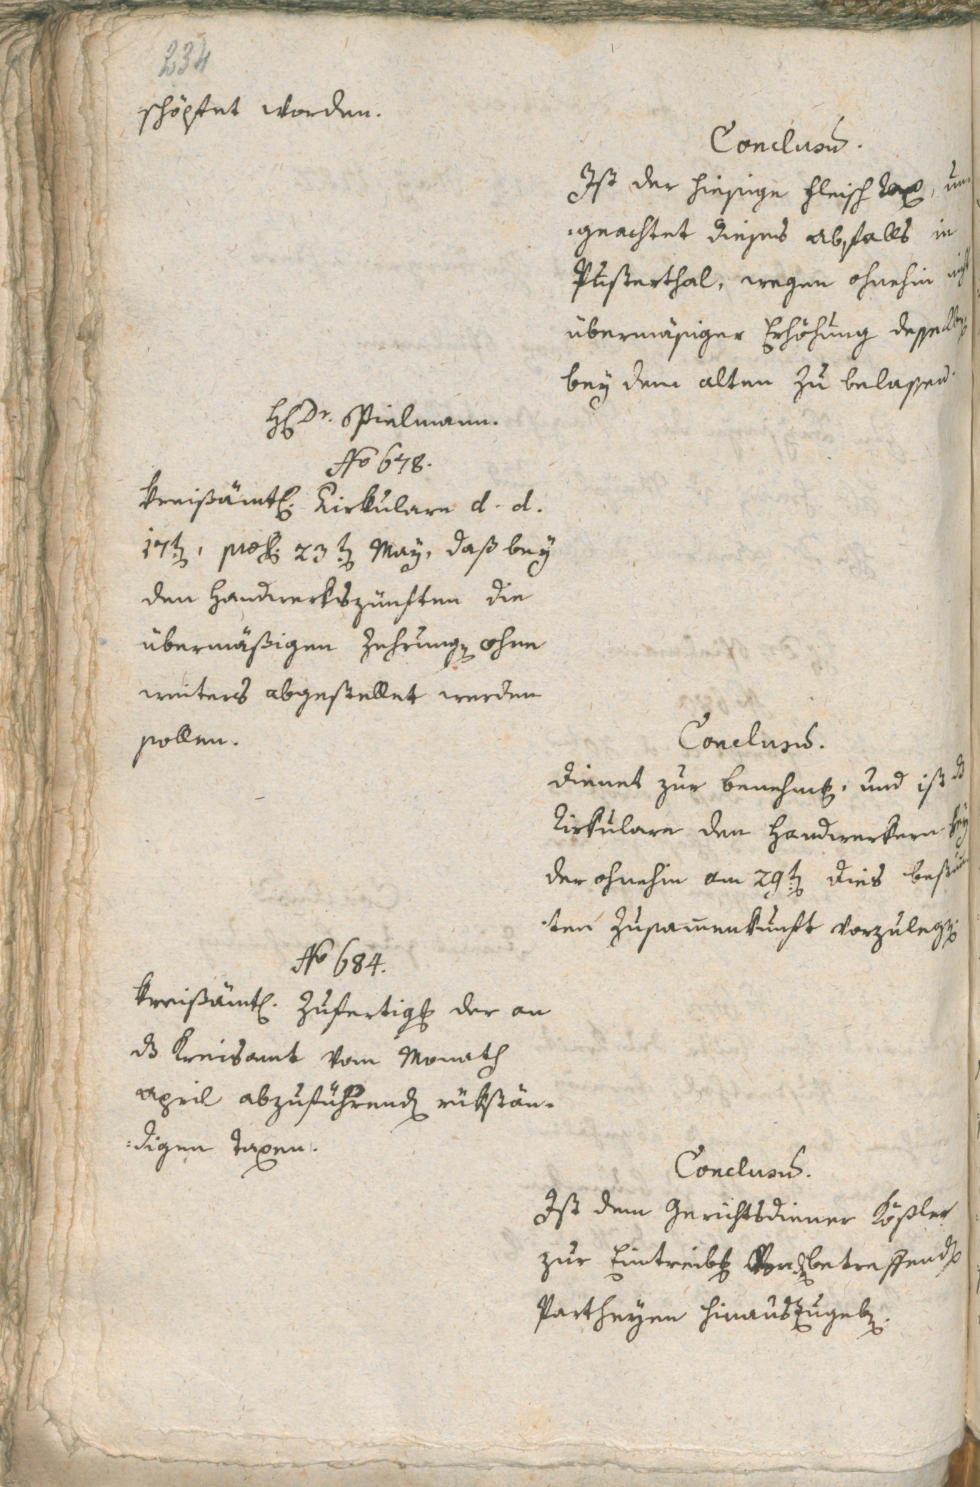 234
schöpfet worden.
Conclusũ.
Ist der hiesige Fleisch Tax, un
:geachtet dieses abfalls in
Pusterthal, wegen ohnehin nicht
übermäsiger Erhöhung desselben
bey dem alten zu belassen.
H. Dr. Spielmann.
No 678.
Kreisämtl. Cirkulare d. d.
17t, praes. 23t May, daß bey
den Handwerkszünften die
übermäßigen Zehrung ohne
weiters abgestellet werden
sollen.
Conclusũ.
dienet zur benehmg. und ist ds
Cirkulare den Handwerkern bey
der ohnehin am 29t dies bestim
:ten Zusam̄enkunft vorzulegen.
No 684.
Kreisämtl. Zufertigg der an
ds Kreisamt vom Monath
April abzuführend rükstän-
:digen Taxen.
Conclusũ.
Ist dem Gerichtsdiener Kößler
zur Eintreibg betreffend
Partheyen hinauszugeben.